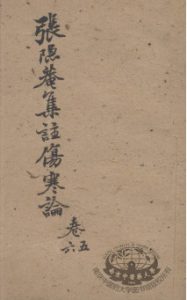 張隱菴集註傷寒論
卷五
六